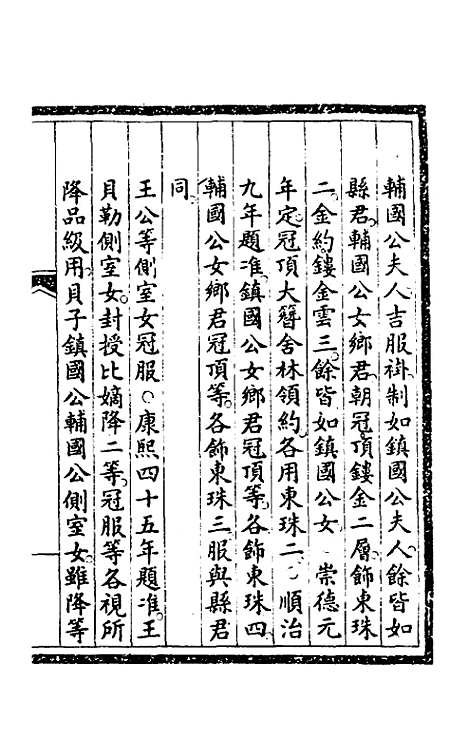 輔國公夫人吉服褂制如鎮國公夫人餘皆如
縣君輔國公女鄉君朝冠頂鏤金二層飾東珠
二金約鏤金雲三餘皆如鎮國公女○崇德元
年定冠頂大簪舍林領約各用東珠二○順治
九年題准鎮國公女鄉君冠頂等各飾東珠四
輔國公女鄉君冠頂等各飾東珠三服與縣君
同
王公等側室女冠服○康熙四十五年題准王
貝勒側室女封授比嫡降二等冠服等各視所
降品級用貝子鎮國公輔國公側室女雖降等